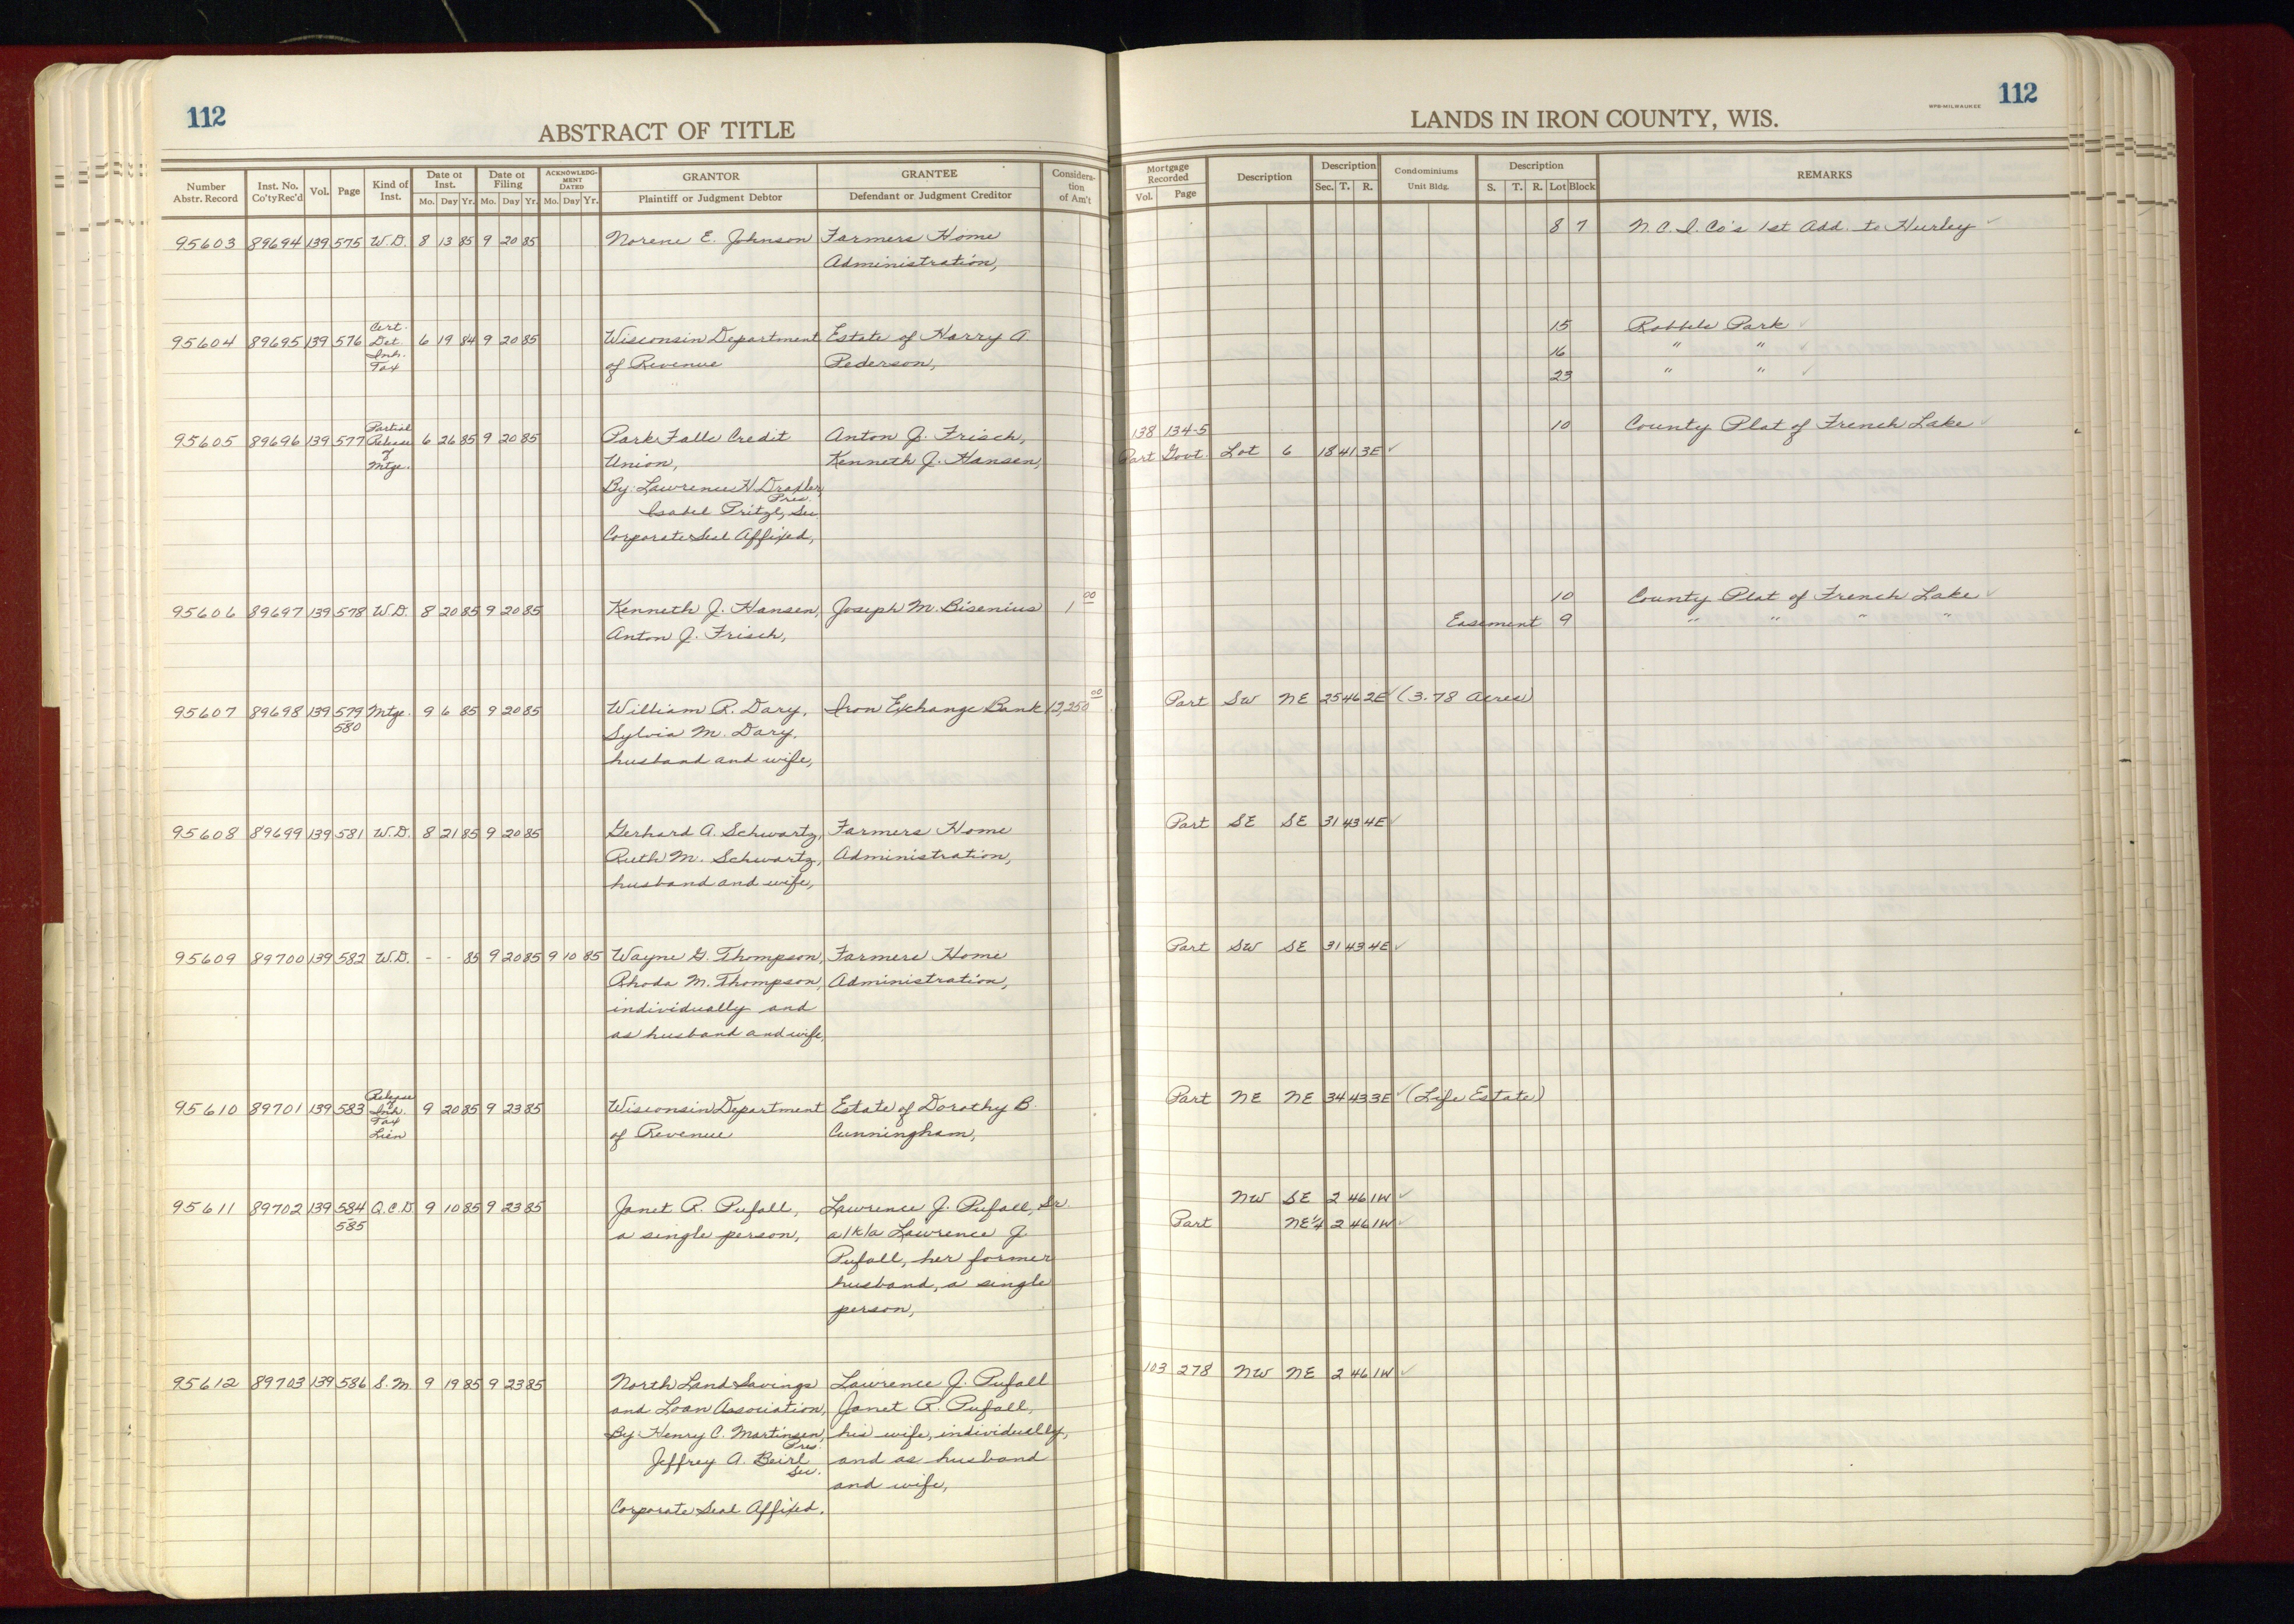 112
ABSTRACT OF TITLE
Number Abstr. Record
Inst. No. Co'ty Rec'd
Vol.
Page
Kind of Inst.
Date of Inst. Mo. Day Yr.
Date of Filing Mo. Day Yr.
ACKNOWLEDGMENT DATED Mo. Day Yr.
GRANTOR Plaintiff or Judgment Debtor
GRANTEE Defendant or Judgment Creditor
Consideration of Am't
95603 89694 139 575 W.D. 8 13 85 9 20 85 Norene E. Johnson Farmers Home
Administration,
95604 89695 139 576 Cert. Det. Inh. Tax 6 19 84 9 20 85 Wisconsin Department Estate of Harry A.
of Revenue Pederson,
95605 89696 139 577 Partial Release of Mtge. 6 26 85 9 20 85 Park Falls Credit Anton J. Frisch,
Union, Kenneth J. Hansen,
By: Lawrence H. Drexler,
Pres.
Isabel Pritzl, Sec.
Corporate Seal Affixed,
95606 89697 139 578 W.D. 8 20 85 9 20 85 Kenneth J. Hansen, Joseph M. Bisenius 1 00
Anton J. Frisch,
95607 89698 139 579 580 Mtge. 9 6 85 9 20 85 William R. Dary, Iron Exchange Bank 12,250 00
Sylvia M. Dary,
husband and wife,
95608 89699 139 581 W.D. 8 21 85 9 20 85 Gerhard A. Schwartz, Farmers Home
Ruth M. Schwartz, Administration,
husband and wife,
95609 89700 139 582 W.D. - - 85 9 20 85 9 10 85 Wayne G. Thompson, Farmers Home
Rhoda M. Thompson, Administration,
individually and
as husband and wife,
95610 89701 139 583 Release of Inh. Tax Lien 9 20 85 9 23 85 Wisconsin Department Estate of Dorothy B.
of Revenue Cunningham,
95611 89702 139 584 585 Q.C.D 9 10 85 9 23 85 Janet R. Pufall, Lawrence J. Pufall, Sr.
a single person, a/k/a Lawrence J.
Pufall, her former
husband, a single
person,
95612 89703 139 586 S.M. 9 19 85 9 23 85 North Land Savings Lawrence J. Pufall
and Loan Association, Janet R. Pufall,
By: Henry C. Martinsen, his wife, individually,
Pres.
Jeffrey A. Beirl and as husband
Sec.
and wife,
Corporate Seal Affixed.
WPB-MILWAUKEE
112
LANDS IN IRON COUNTY, WIS.
Mortgage Recorded Vol. Page
Description
Description Sec. T. R.
Condominiums Unit Bldg.
Description S. T. R. Lot Block
REMARKS
8 7 N.C.I. Co's 1st Add. to Hurley ✓
15 Park ✓
16 " " ✓
23 " " ✓
138 134-5 10 County Plat of French Lake ✓
Part Govt. Lot 6 18 41 3E ✓
10 County Plat of French Lake ✓
Easement 9 " " " "
Part SW NE 25 46 2E ✓ (3.78 Acres)
Part SE SE 31 43 4E ✓
Part SW SE 31 43 4E ✓
Part NE NE 34 43 3E ✓ (Life Estate)
NW SE 2 46 1W ✓
Part NE¼ 2 46 1W ✓
103 278 NW NE 2 46 1W ✓